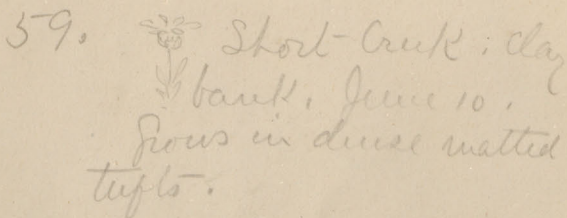 59. Short Creek; clay
bank, June 10.
Grows in dense matted
tufts.